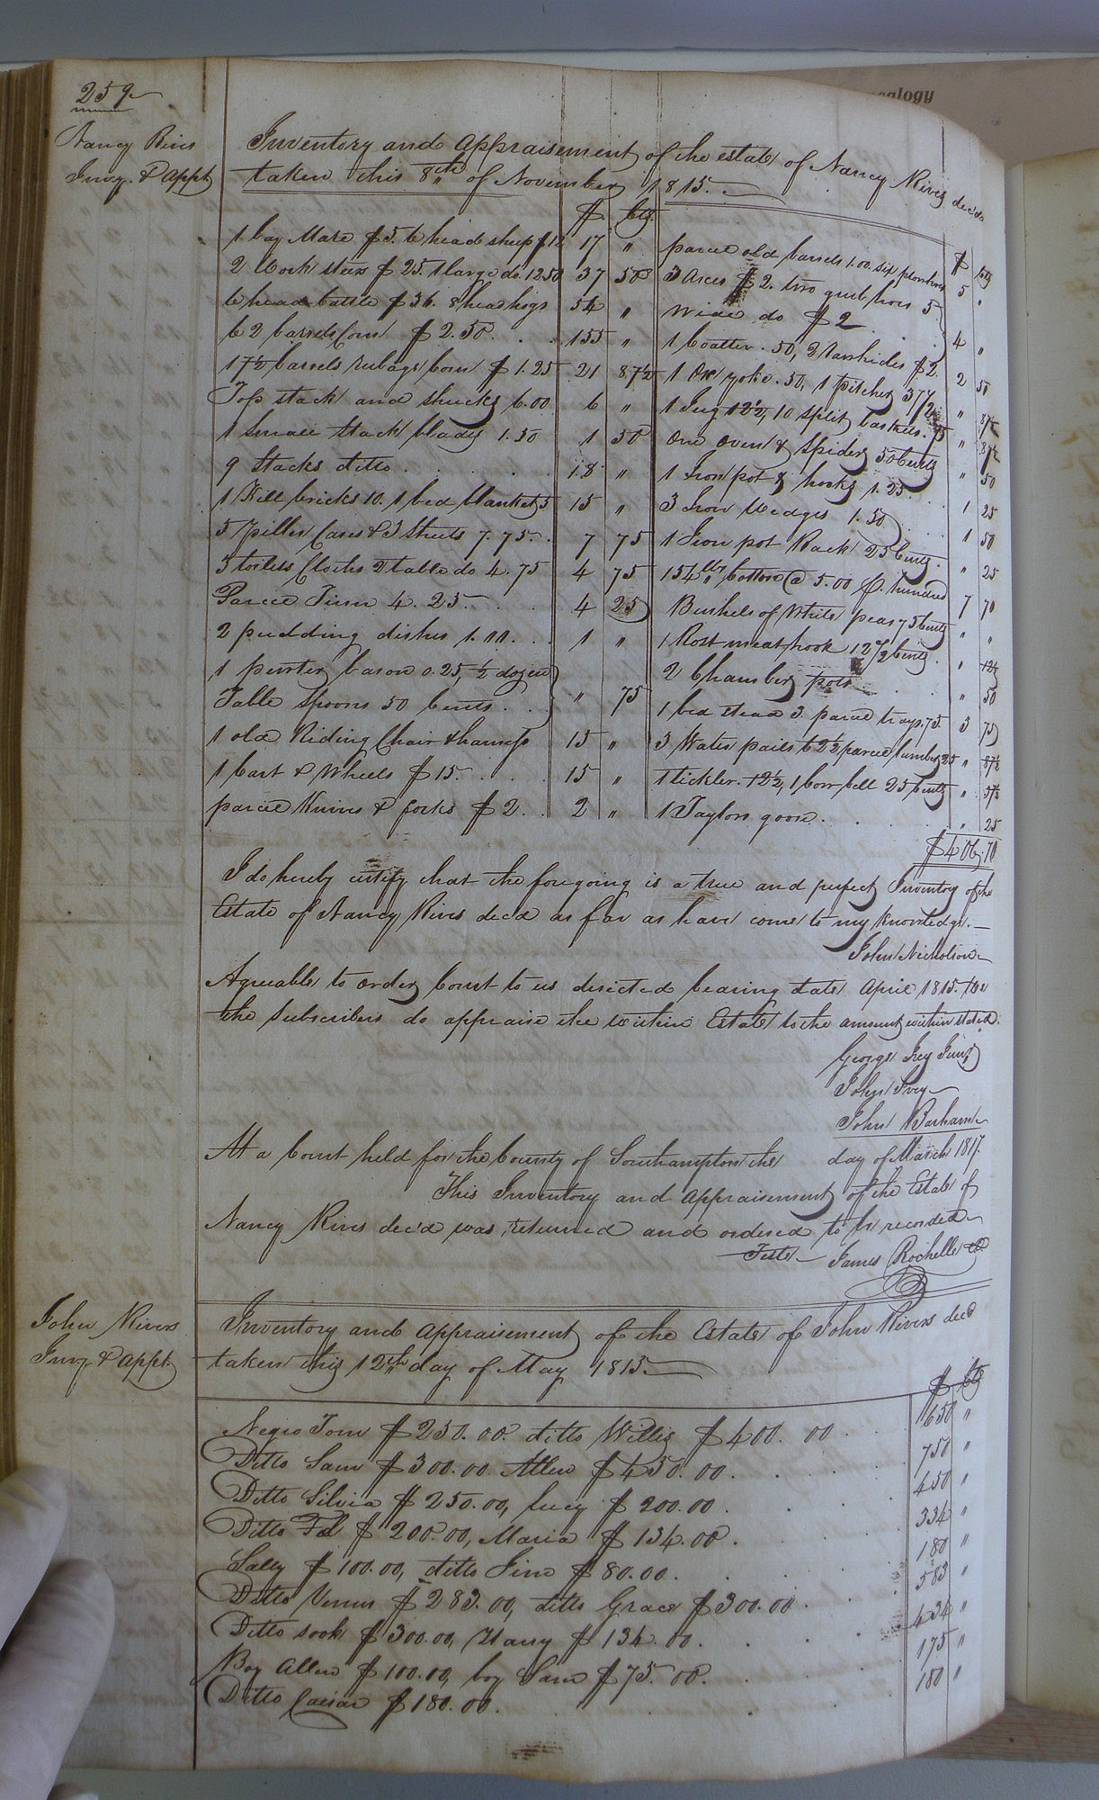 259
Nancy Rives
Invy. & Appt
Inventory and Appraisement of the estate of Nancy Rives decd.
taken this 8th of November 1815.
$ Cts
1 bay Mare $5. 6 head sheep $12 17 "
2 Work steers $25. 1 large do. 12.50 37 50
6 head Cattle $36. 8 head hogs 54 "
62 barrels Corn $2.50 . . . 155 "
17½ barrels rubage Corn $1.25 21 87½
Top stack and shucks 6.00 6 "
1 small stack blades 1.50 1 50
9 Stacks ditto . . . . 18 "
1 Kill bricks 10. 1 bed blankets 5 15 "
5 Pillow Cases & 3 Sheets 7.75. . 7 75
3 toilets Cloths 2 table do. 4.75 4 75
Parcel Tinn 4.25. . . 4 25
2 pudding dishes 1.00. . . 1 "
1 pewter bason 0.25, ½ dozen
Table Spoons 50 Cents. . " 75
1 old Riding Chair & harness 15 "
1 Cart & Wheels $15. . . . 15 "
parcel Knives & forks $2. . 2 "
$ Cts
parcel old barrels 1.00. six
3 Axes $2. two grub hoes 5 "
Wide do $2 . . 4 "
1 Coatter .50, 2 Rawhides $2. 2 50
1 Ox yoke .50, 1 pitcher 37½ " 87½
1 Jug 12½, 10 split baskets .75 " 87½
One oven & Spider 50 Cents " 50
1 Iron pot & hooks 1.25. 1 25
3 Iron Wedges 1.50 1 50
1 Iron pot Rack 25 Cents. " 25
154 lbs Cotton @ 5.00 p. hundred 7 70
Bushels of White peas 75 Cents " "
1 Rost meat hook 12½ Cents. " 12½
2 Chamber pots . . . " 50
1 bed stead 3. parcel trays .75. 3 75
3 Water pails 62½ parcel lumber 25 " 87½
1 tickler. 12½, 1 Cow bell 25 Cents " 37½
1 Taylors goose. . . . " 25
$406.70
I do hereby certify that the foregoing is a true and perfect Inventory of the
Estate of Nancy Rives decd as far as have come to my Knowledge.—
John Nicholson
Agreeable to order Court to us directed bearing date April 1815. We
the Subscribers do appraise the within Estate to the amount within stated.
George Ivy Junr
John Ivey
John Barham
At a Court held for the County of Southampton the day of March 1817.
This Inventory and Appraisement of the Estate of
Nancy Rives decd was returned and ordered to be recorded
Teste James Rochelle CC
John Rivers
Invy. & Appt.
Inventory and Appraisement of the Estate of John Rivers decd
taken this 12th day of May 1815.
$ Cts
Negro Tom $250.00. ditto Willis $400.00 . 650 "
Ditto Sam $300.00 Allen $450.00. . . 750 "
Ditto Silvia $250.00, Lucy $200.00 . . 450 "
Ditto Ed $200.00, Maria $134.00. . . 334 "
Sally $100.00, ditto Sino $80.00. . . 180 "
Ditto Venus $283.00, ditto Grace $300.00 . . 583 "
Ditto Sook $300.00, Harry $134.00. . . 434 "
Boy Allen $100.00, boy Sam $75.00. . . 175 "
Ditto Caesar $180.00. . . 180 "